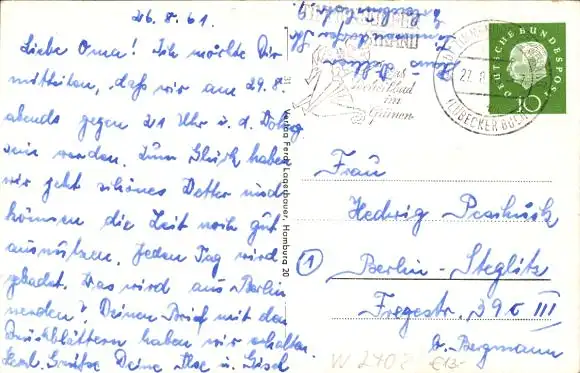 26.8.61.
Liebe Oma! Ich möchte Dir
mitteilen, daß wir am 29.8.
abends gegen 21 Uhr
sein werden. Zum Glück haben
wir jetzt schönes Wetter und
können die Zeit noch gut
ausnutzen. Jeden Tag wird
gebadet. Was wird aus Berlin
werden? Deinen Brief mit den
Druckblättern haben wir erhalten.
Herzl. Grüße Deine Ilse u.
STRAND
im
Grünen
DEUTSCHE BUNDESPOST
10
LÜBECKER BUCHT
Verlag Ferd. Lagerbauer, Hamburg 20
Frau
Hedwig
1
Berlin-Steglitz
Fregestr. 39c III
b. Bergmann
W 2702
€13-